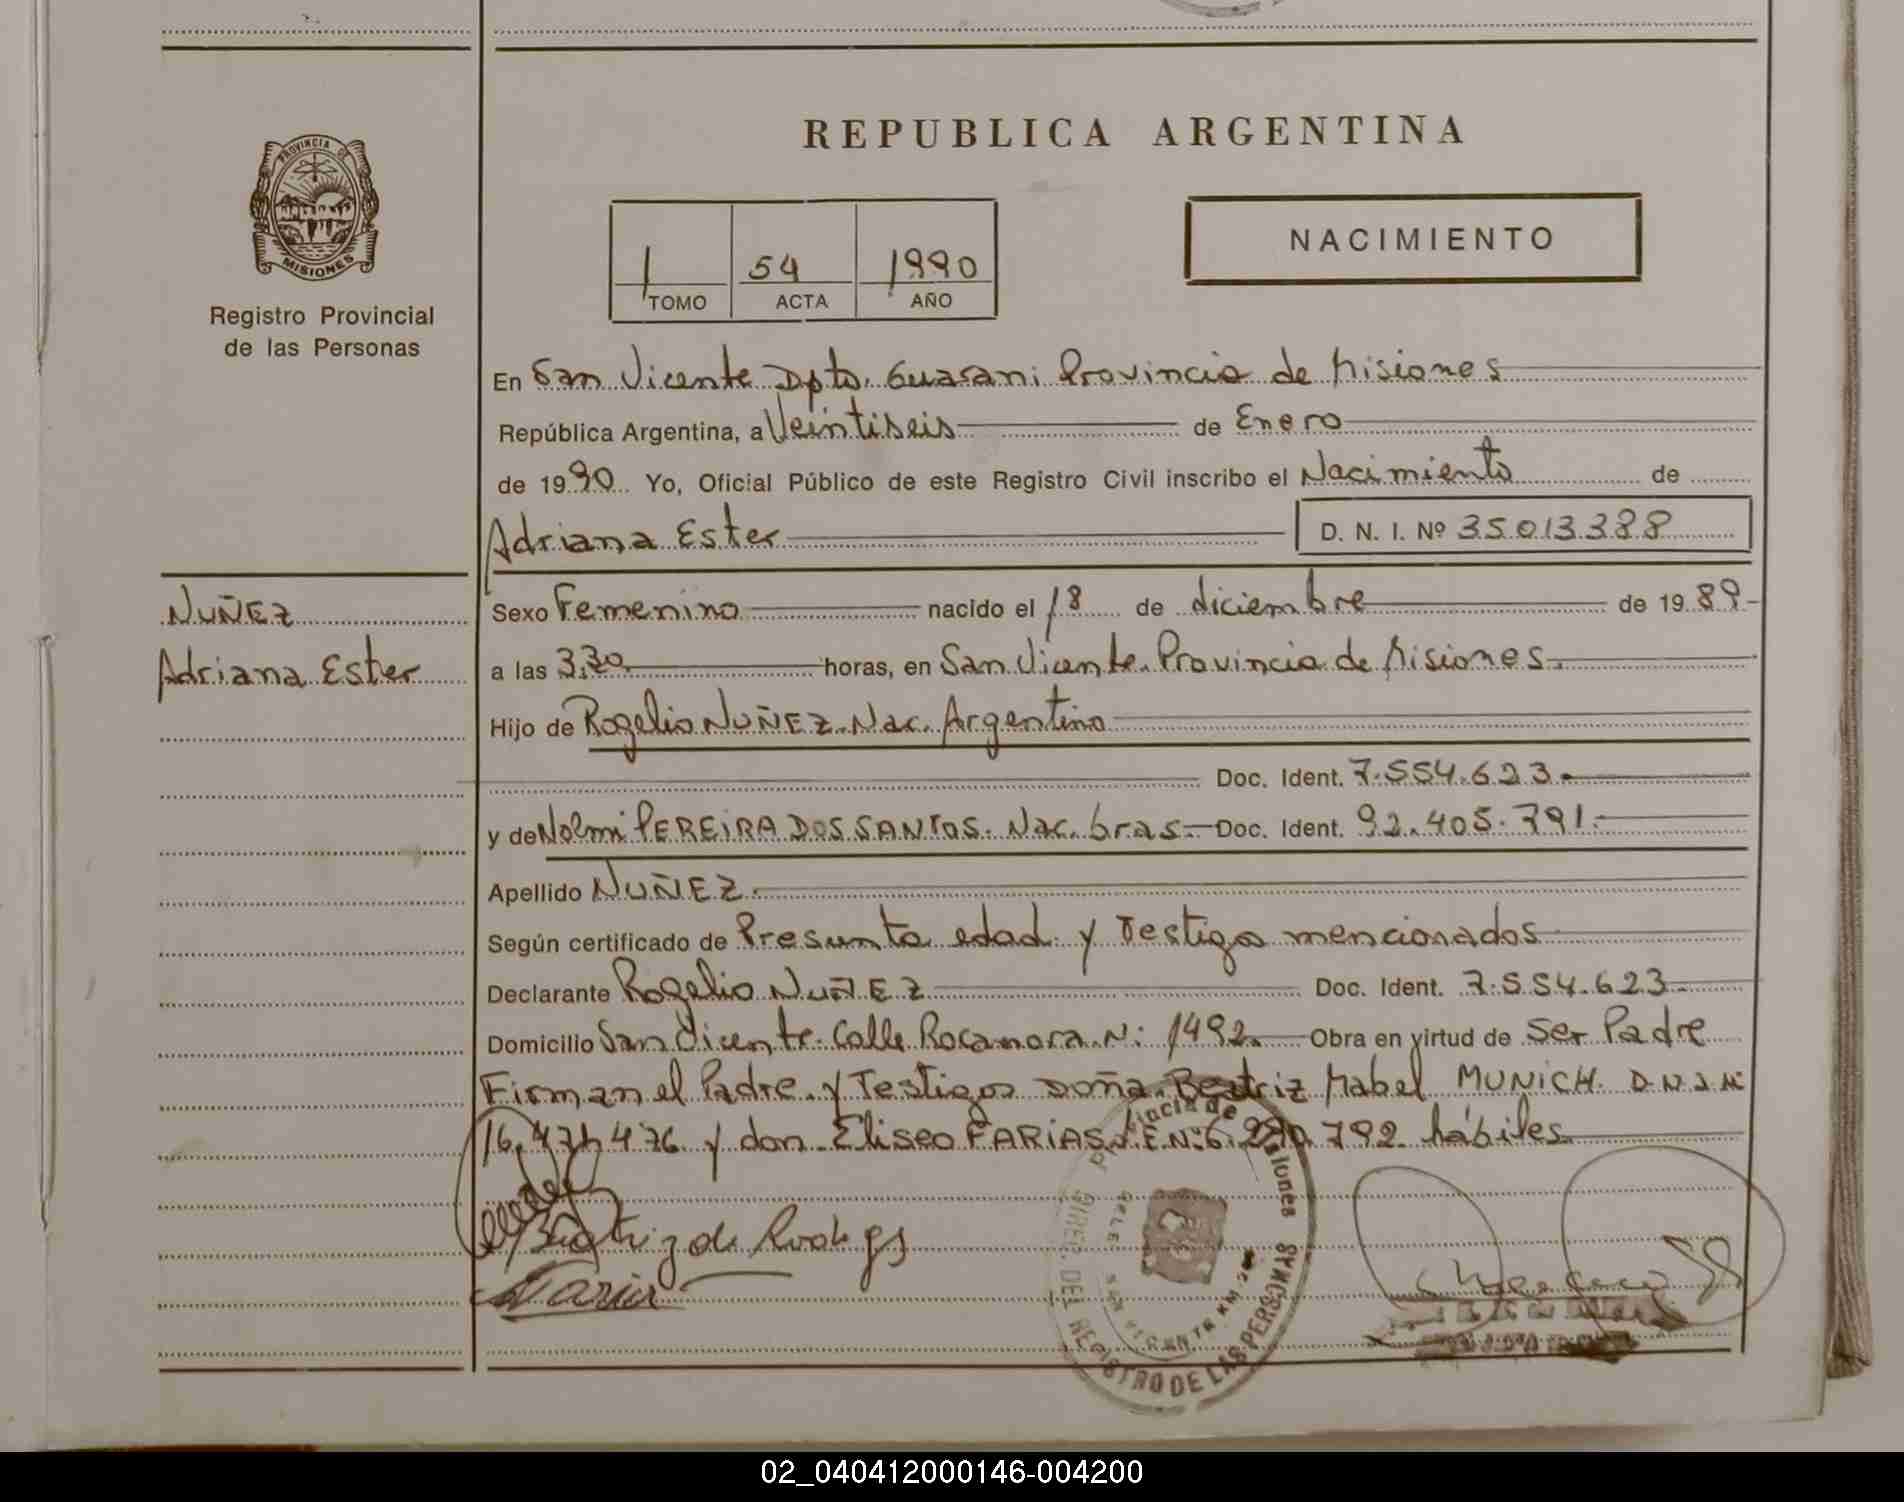 REPUBLICA ARGENTINA
PROVINCIA DE
MISIONES
Registro Provincial
de las Personas
1 54 1990
TOMO ACTA AÑO
NACIMIENTO
En San Vicente Dpto. Guarani Provincia de Misiones
República Argentina, a Veintiseis de Enero
de 1990 Yo, Oficial Público de este Registro Civil inscribo el Nacimiento de
Adriana Ester D. N. I. Nº 35013388
NUÑEZ
Adriana Ester
Sexo Femenino nacido el 18 de diciembre de 1989
a las 3,30 horas, en San Vicente Provincia de Misiones.
Hijo de Rogelio NUÑEZ. Nac. Argentino
Doc. Ident. 7.554.623.
y de PEREIRA DOS SANTOS. Nac. bras. Doc. Ident. 92.405.791.
Apellido NUÑEZ.
Según certificado de Presunta edad y Testigos mencionados
Declarante Rogelio NUÑEZ Doc. Ident. 7.554.623
Domicilio San Vicente. Calle Rocamora. N: 1492. Obra en virtud de Ser Padre
Firman el Padre y Testigos Doña Beatriz Mabel MUNICH. D.N.I. Nº
16.471.476 y don Eliseo FARIAS 792 hábiles.
Beatriz de
DIREC. DEL REGISTRO DE LAS PERSONAS
02_040412000146-004200